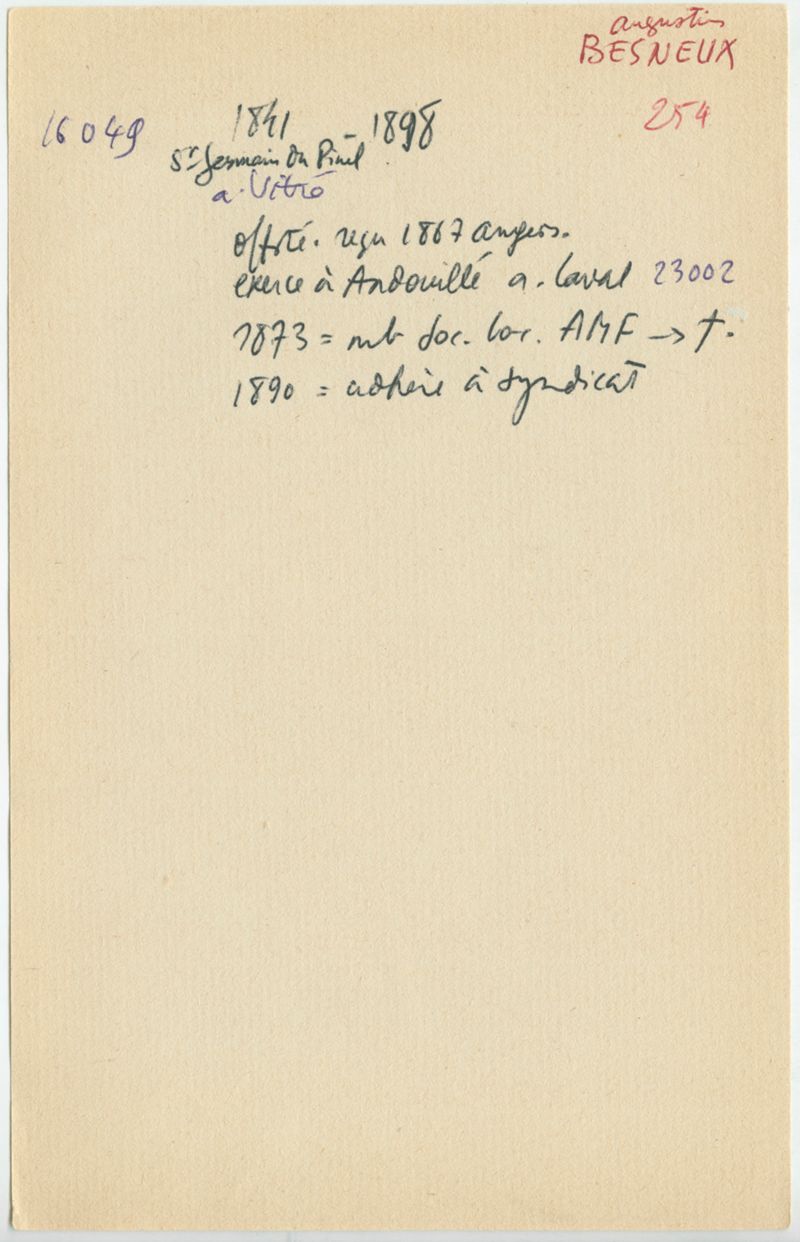 Augustin
BESNEUX
254
16049 1841 - 1898
St Germain du Pinel
a. Vitré
offté. reçu 1867 angers.
exerce à Andouillé a. Laval 23002
1873 = mb soc. loc. AMF → †.
1890 = adhère à syndicat